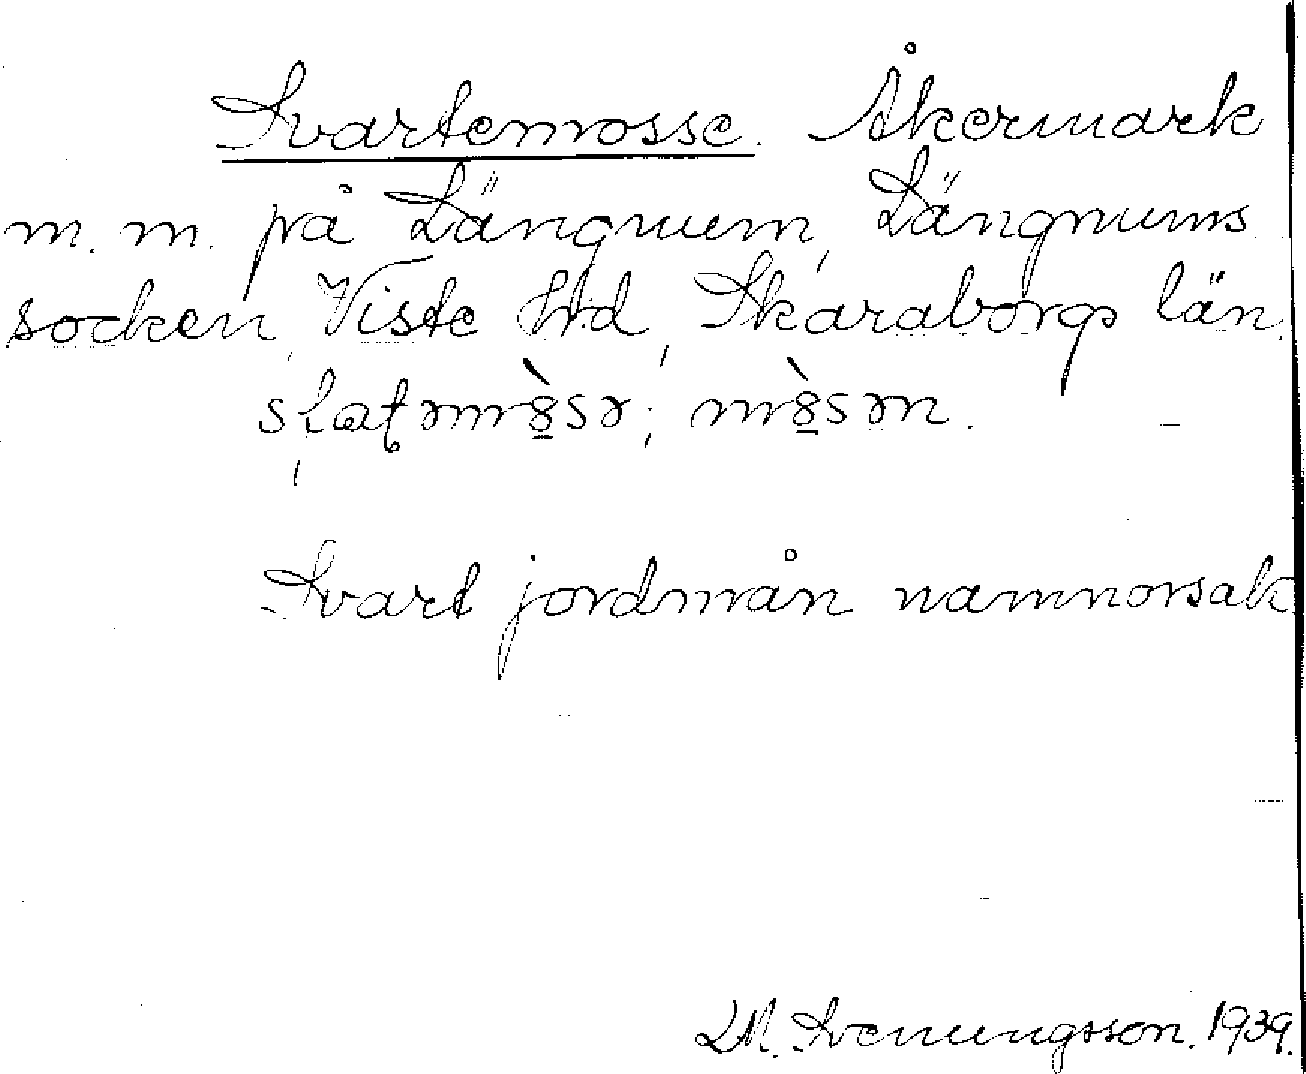 Svartemosse. Åkermark
m. m. på Längnum, Längnums
socken, Viste Hd, Skaraborgs län.
Svart jordmån namnorsak
LM. Svenungsson. 1939.